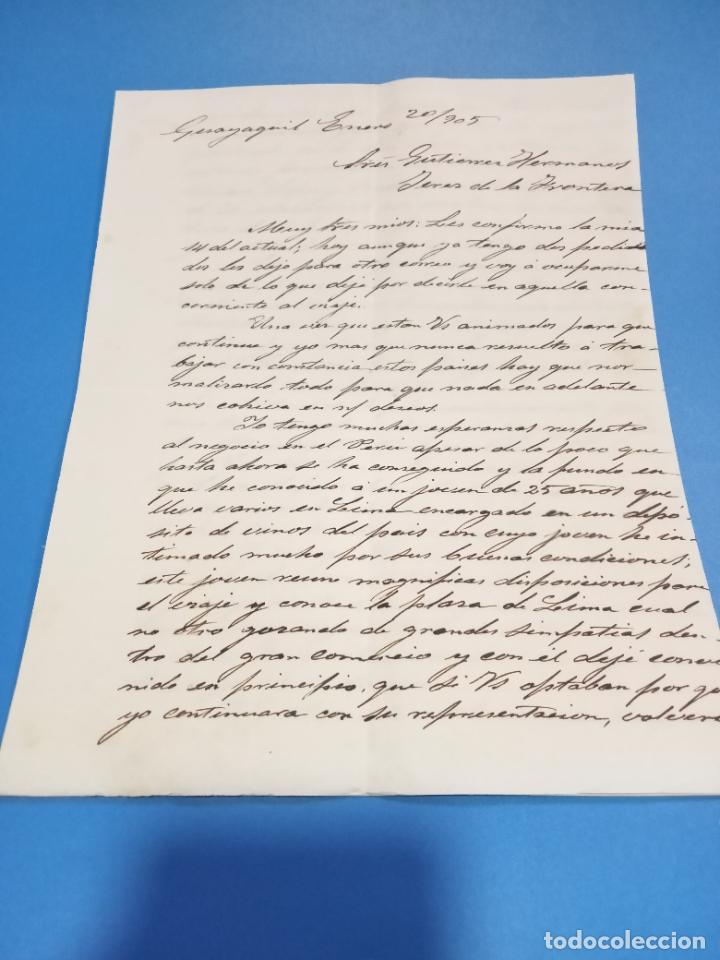 Guayaquil Enero 20/905
Sres Gutierrez Hermanos
Jerez de la Frontera
Muy Sres mios: Les confirmo la mia
14 del actual; hoy aunque ya tengo dos pedidos
los dejo para otro correo y voy á ocuparme
solo de lo que dejé por decirle en aquella con-
cerniente al viaje.
Una vez que estan Vs animados para que
continue y yo mas que nunca resuelto á tra-
bajar con constancia estos paises hay que nor-
malizarlo todo para que nada en adelante
nos cohiva en n/ deseos.
Yo tengo muchas esperanzas respecto
al negocio en el Perú apesar de lo poco que
hasta ahora se ha conseguido y la fundo en
que he conocido á un joven de 25 años que
lleva varios en Lima encargado en un depo-
sito de vinos del pais con cuyo joven he in-
timado mucho por sus buenas condiciones;
este joven reune magnificas disposiciones para
el viaje y conoce la plaza de Lima cual
no otro gozando de grandes simpatias den-
tro del gran comercio y con él dejé conve
nido en principio, que si Vs optaban por q
yo continuara con su representacion, volver
todocoleccion
todocoleccion.net